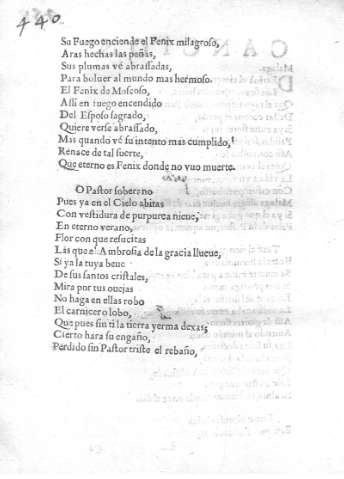 440.
Su Fuego enciende el Fenix milagroso,
Aras hechas las peñas,
Sus plumas vé abrassadas,
Para boluer al mundo mas hermoso.
El Fenix de Moscoso,
Assi en fuego encendido
Del Esposo sagrado,
Quiere verse abrassado,
Mas quando vé su intento mas cumplido,
Renace de tal suerte,
Que eterno es Fenix donde no vuo muerte.
O Pastor soberano
Pues ya en el Cielo abitas
Con vestidura de purpurea nieue,
En eterno verano,
Flor con que resucitas
Las que el Ambrosia de la gracia llueue,
Si ya la tuya beue
De sus santos cristales,
Mira por tus ouejas
No haga en ellas robo
El carnicero lobo,
Que pues sin ti la tierra yerma dexas,
Cierto hara su engaño,
Perdido sin Pastor triste el rebaño,